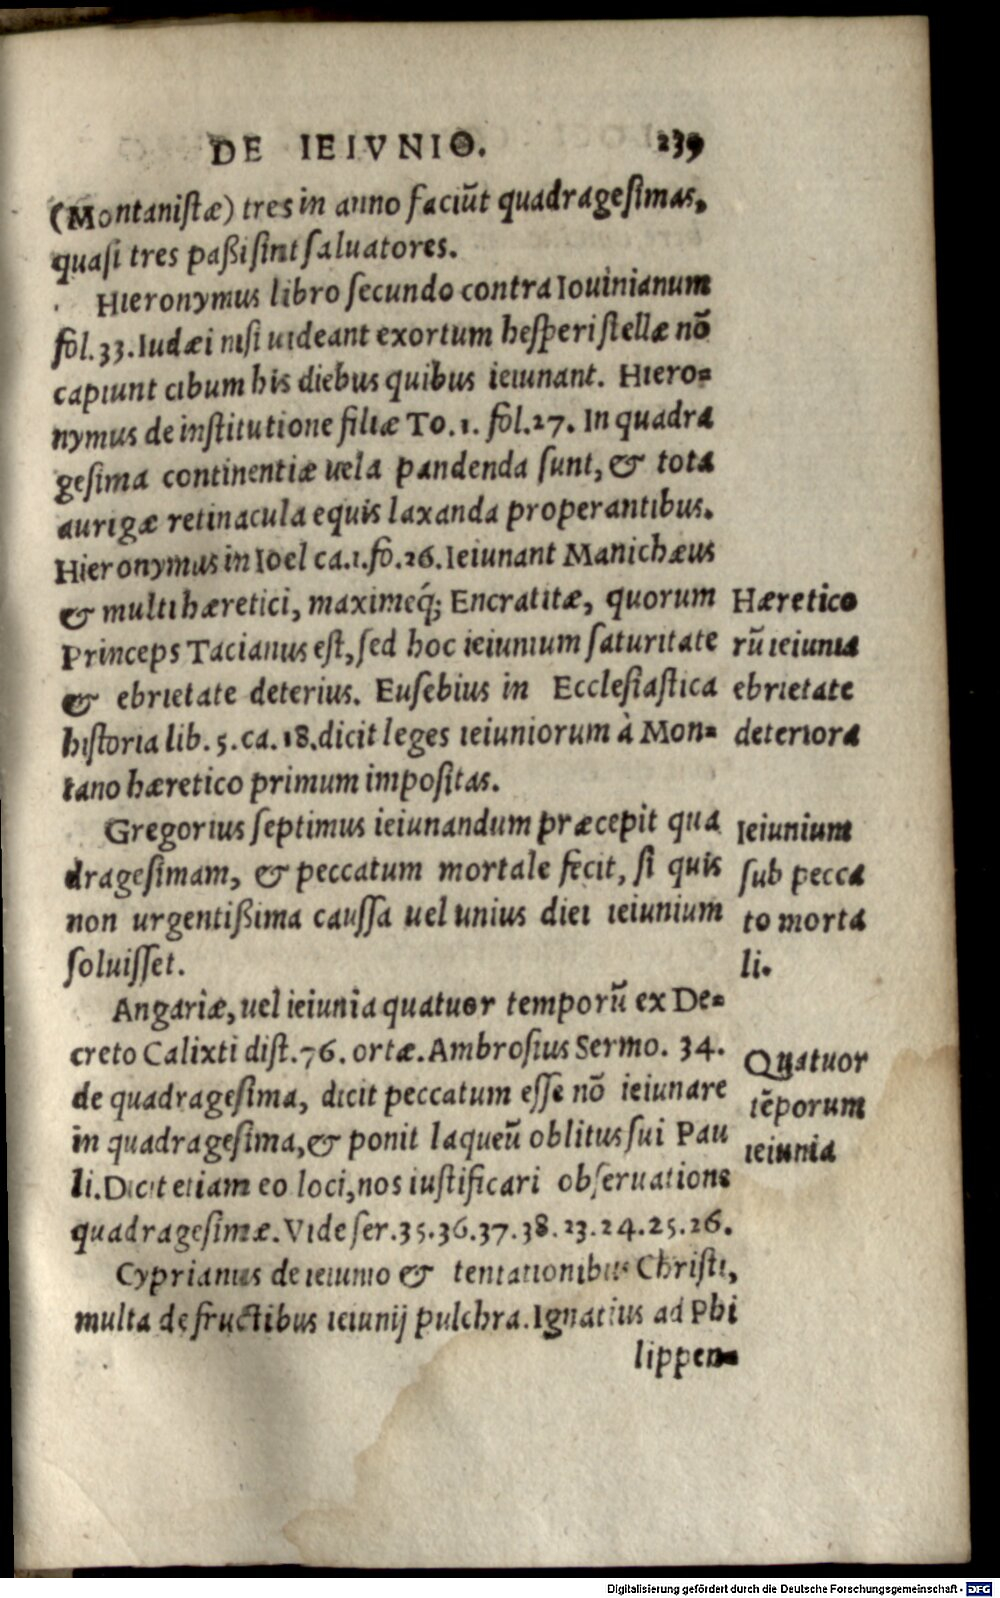 DE IEIVNIO. 239
(Montanistæ) tres in anno faciũt quadragesimas,
quasi tres paßi sint saluatores.
Hieronymus libro secundo contra Iouinianum
fol.33. Iudæi nisi uideant exortum hesperi stellæ nõ
capiunt cibum his diebus quibus ieiunant. Hiero=
nymus de institutione filiæ To.1. fol.27. In quadra
gesima continentiæ uela pandenda sunt, & tota
aurigæ retinacula equis laxanda properantibus.
Hieronymus in Ioel ca.1.fo.26. Ieiunant Manichæus
& multi hæretici, maximeq́; Encratitæ, quorum
Princeps Tacianus est, sed hoc ieiunium saturitate
& ebrietate deterius. Eusebius in Ecclesiastica
historia lib. 5. ca. 18. dicit leges ieiuniorum à Mon=
tano hæretico primum impositas.
Hæretico
rũ ieiunia
ebrietate
deteriora
Gregorius septimus ieiunandum præcepit qua
dragesimam, & peccatum mortale fecit, si quis
non urgentißima caussa uel unius diei ieiunium
soluisset.
Ieiunium
sub pecca
to morta
li.
Angariæ, uel ieiunia quatuor temporũ ex De=
creto Calixti dist.76. ortæ. Ambrosius Sermo. 34.
de quadragesima, dicit peccatum esse nõ ieiunare
in quadragesima, & ponit laqueũ oblitus sui Pau
li. Dicit etiam eo loci, nos iustificari obseruatione
quadragesimæ. Vide ser.35.36.37.38.23.24.25.26.
Quatuor
tẽporum
ieiunia
Cyprianus de ieiunio & tentationibus Christi,
multa de fructibus ieiunij pulchra. Ignatius ad Phi
lippen=
Digitalisierung gefördert durch die Deutsche Forschungsgemeinschaft - DFG